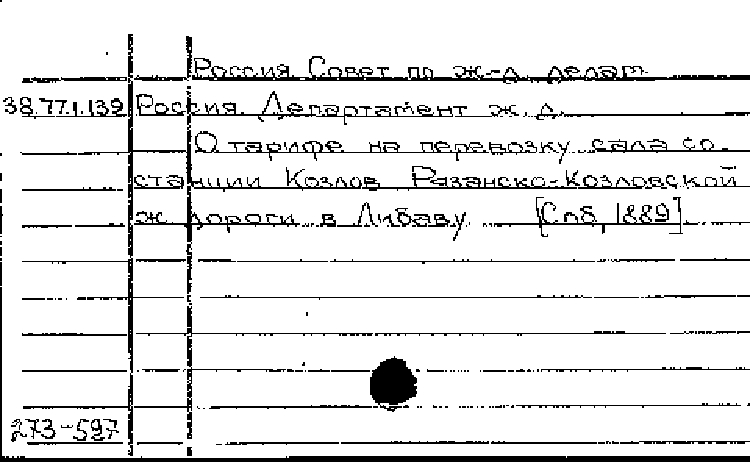 Россия. Совет по ж-д. делам
38.77.1.139 Россия. Департамент ж.д.
О тарифе на перевозку сала со
станции Козлов Рязанско-Козловской
ж дороги в Либаву [Спб, 1889].
273-597